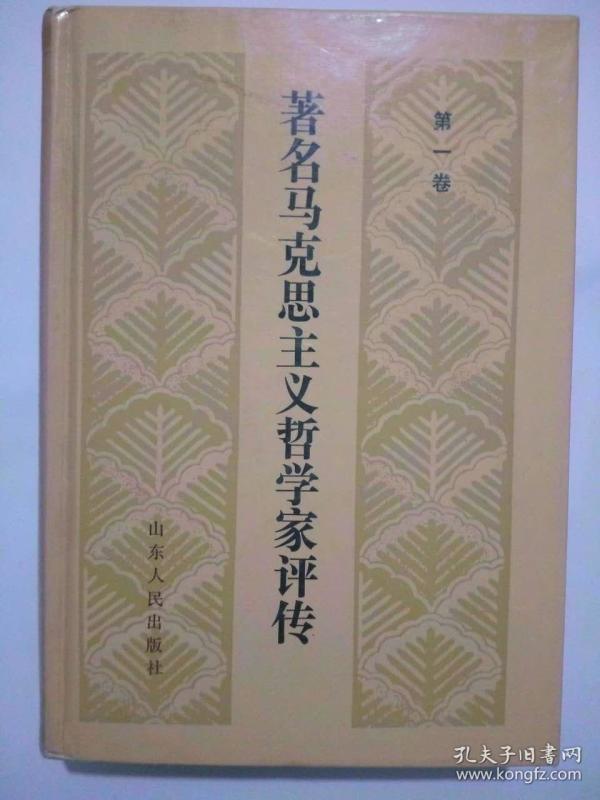 第一卷
著名马克思主义哲学家评传
山东人民出版社
孔夫子旧书网
www.kongfz.com